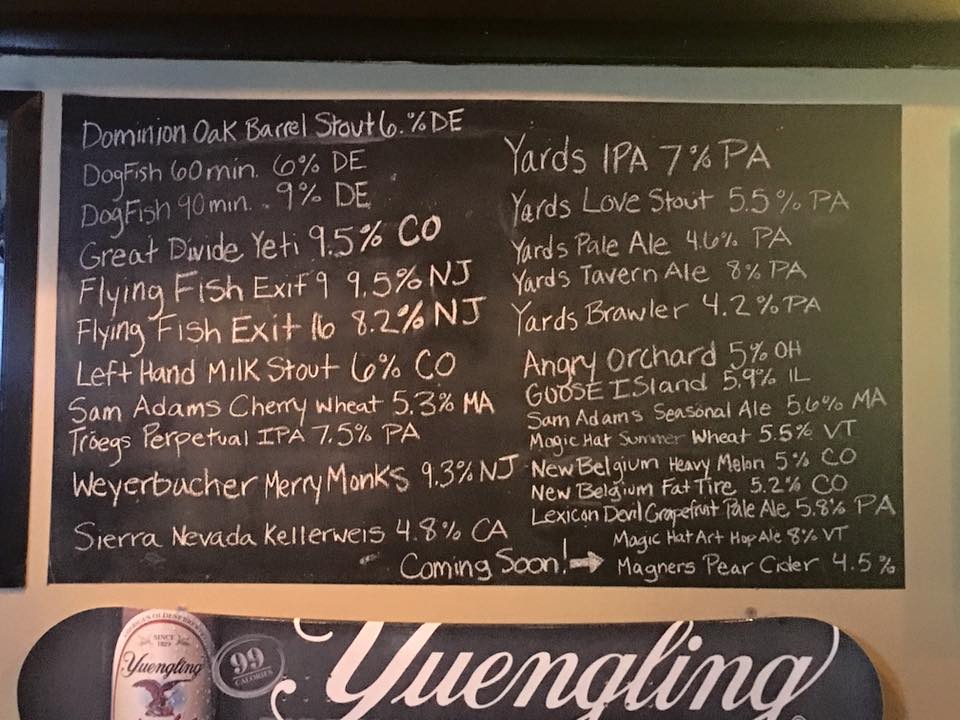 Dominion Oak Barrel Stout 6.% DE
DogFish 60 min. 6% DE
DogFish 90 min. . 9% DE
Great Divide Yeti 9.5% CO
Flying Fish Exit 9 9.5% NJ
Flying Fish Exit 16 8.2% NJ
Left Hand Milk Stout 6% CO
Sam Adams Cherry Wheat 5.3% MA
Tröegs Perpetual IPA 7.5% PA
Weyerbucher Merry Monks 9.3% NJ
Sierra Nevada Kellerweis 4.8% CA
Yards IPA 7% PA
Yards Love Stout 5.5% PA
Yards Pale Ale 4.6% PA
Yards Tavern Ale 8% PA
Yards Brawler 4.2% PA
Angry Orchard 5% OH
Goose Island 5.9% IL
Sam Adams Seasonal Ale 5.6% MA
Magic Hat Summer Wheat 5.5% VT
New Belgium Heavy Melon 5% CO
New Belgium Fat Tire 5.2% CO
Lexicon Devil Grapefruit Pale Ale 5.8% PA
Magic Hat Art Hop Ale 8% VT
Coming Soon! → Magners Pear Cider 4.5%
AMERICA'S OLDEST BREWERY
SINCE
1829
Yuengling
99
CALORIES
Yuengling